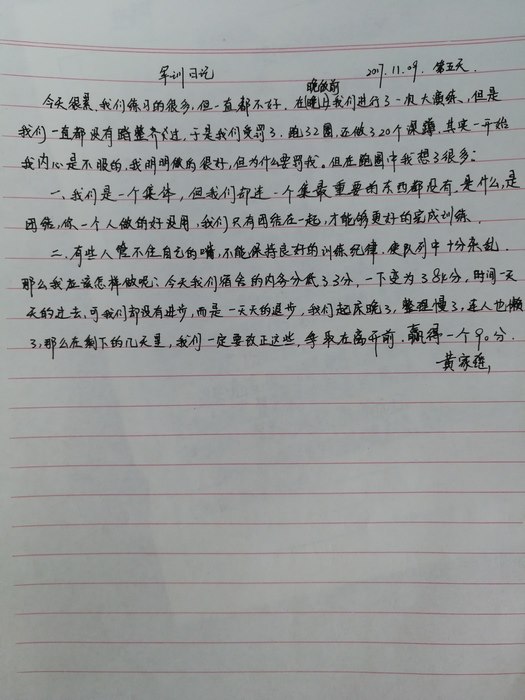 军训日记 2017.11.09. 第五天.
今天很累,我们练习的很多,但一直都不好.在晚饭前我们进行了一次大演练,但是
我们一直都没有踏整齐过,于是我们受罚了.跑了2圈,还做了20个深蹲,其实一开始
我内心是不服的,我明明做的很好,但为什么要罚我。但在跑圈中我想了很多:
一、我们是一个集体,但我们却连一个集最重要的东西都没有.是什么,是
团结,你一个人做的好没用,我们只有团结在一起,才能够更好的完成训练.
二、有些人管不住自己的嘴,不能保持良好的训练纪律,使队列中十分杂乱.
那么我应该怎样做呢:今天我们宿舍的内务分低了3分,一下变为了84分,时间一天
天的过去,可我们却没有进步,而是一天天的退步,我们起床晚了,整理慢了,连人也懒
了,那么在剩下的几天里,我们一定要改正这些,争取在离开前.赢得一个90分.
黄家